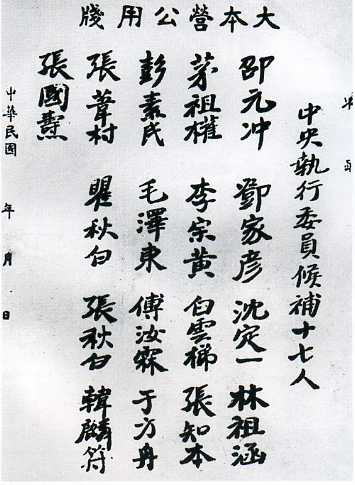 大本營公用牋
中央執行委員候補十七人
邵元冲 鄧家彦 沈定一 林祖涵
茅祖權 李宗黃 白雲梯 張知本
彭素民 毛澤東 傅汝霖 于方舟
張葦村 瞿秋白 張秋白 韓麟符
張國燾
中華民國 年 月 日